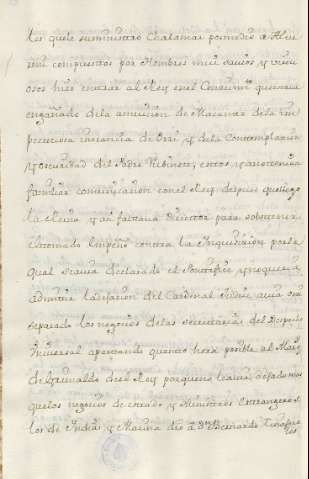 los que le suministro Chalamar por medio de Alve
roni compuestos por Hombres mui savios y virtu
osos hizo entrar al Rey en el
engañado de la ambicion de Macanaz de la im
instancia de Orri y de la Contemplacion
y obscuridad del Padre Robinet, estos, y no tenian
familiar comunicacion con el Rey despues que llego
la Reina y asi faltava director para sobstener
el tomado empeño contra la Inquisicion por la
qual se avia declarado el Pontifice y no queria
admitir la dejacion del Cardenal Judice avia Orri
separado los negocios de las secretarias del Despacho
Universal apartando quanto hera posible al Marq.
de Grimaldo de el Rey porque no le avia dejado mas
que los negocios de estado y Ministros Extrangeros
los de Indias y Marina dio a Dn Bernardo Tinajero
los